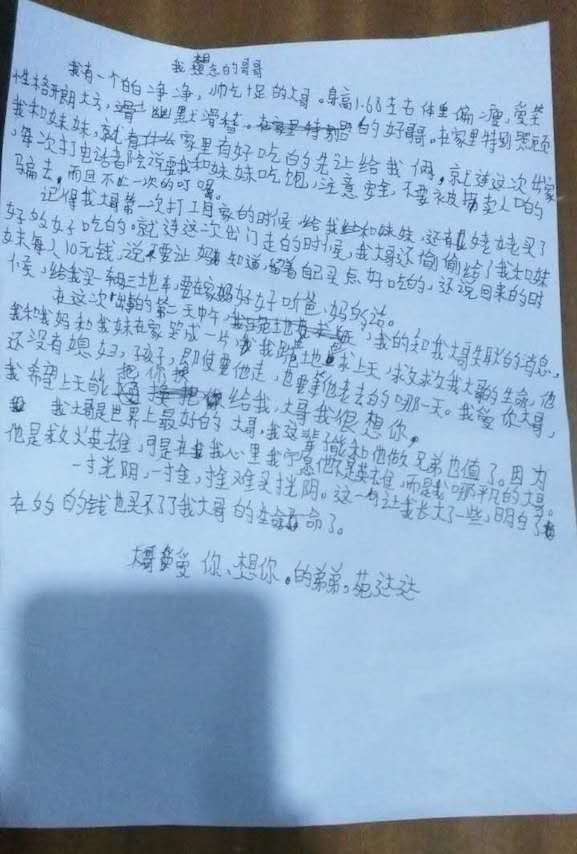 我想念的哥哥
我有一个白白净净,帅气十足的大哥。身高1.68左右体重偏瘦,爱笑
性格开朗大方,幽默滑稽。的好哥哥。在家里特别照顾
我和妹妹,就家里有好吃的先让给我俩,就连这次出家
,每次打电话告诉要我和妹妹吃饱,注意安全,不要被拐卖人口的
骗去,而且不止一次的叮嘱。
记得我大哥第一次打工回家的时候,给我和妹妹,还有姥姥买了
好多好吃的。就连这次出门走的时候,我大哥还偷偷给了我和妹
妹每人10元钱,说不要让妈知道,留着自己买点好吃的,还说回来的时
候,给我买一辆三地车,要在家好好听爸、妈的话。
在这次出事的第二天中午,我的知我大哥失联的消息。
我和我妈和我妹在家哭成一片,我跪地求上天,救救我大哥的生命,他
还没有媳妇,孩子,即使要他走,也要等他老去的哪一天。我爱你大哥,
我希望上天能把你还给我,大哥我很想你。
我大哥是世界上最好的大哥,我这辈子能和他做兄弟也值了。因为
他是救火英雄,可是在我心里我宁愿他不是英雄,而是我哪平凡的大哥。
一寸光阴,一寸金,寸金难买寸光阴。这一句让我长大了一些,明白了
在多的钱也买不了了我大哥的生命了。
大哥爱你、想你。的弟弟。苑达达